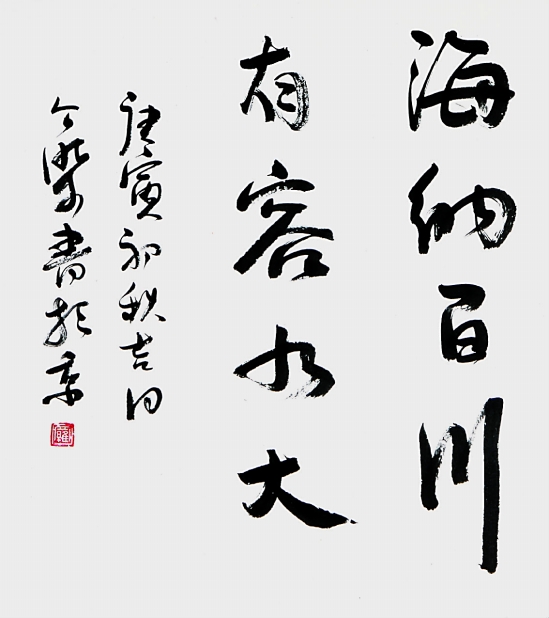 海纳百川
有容乃大
庚寅初秋吉日
书於京